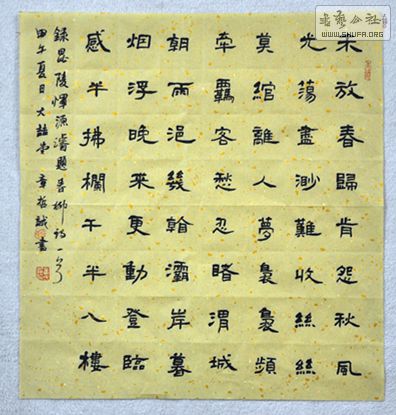 未放春歸肯怨秋風
光蕩盡渺難收絲絲
莫綰離人夢裊裊頻
牽羈客愁忍睹渭城
朝雨浥幾翰灞岸暮
烟浮晚来更動登臨
感半拂欄干半入樓
錄毘陵惲源濬題春柳詩一首
甲午夏日大喆堂章哲誠書
書藝公社
WWW.SHUFA.ORG